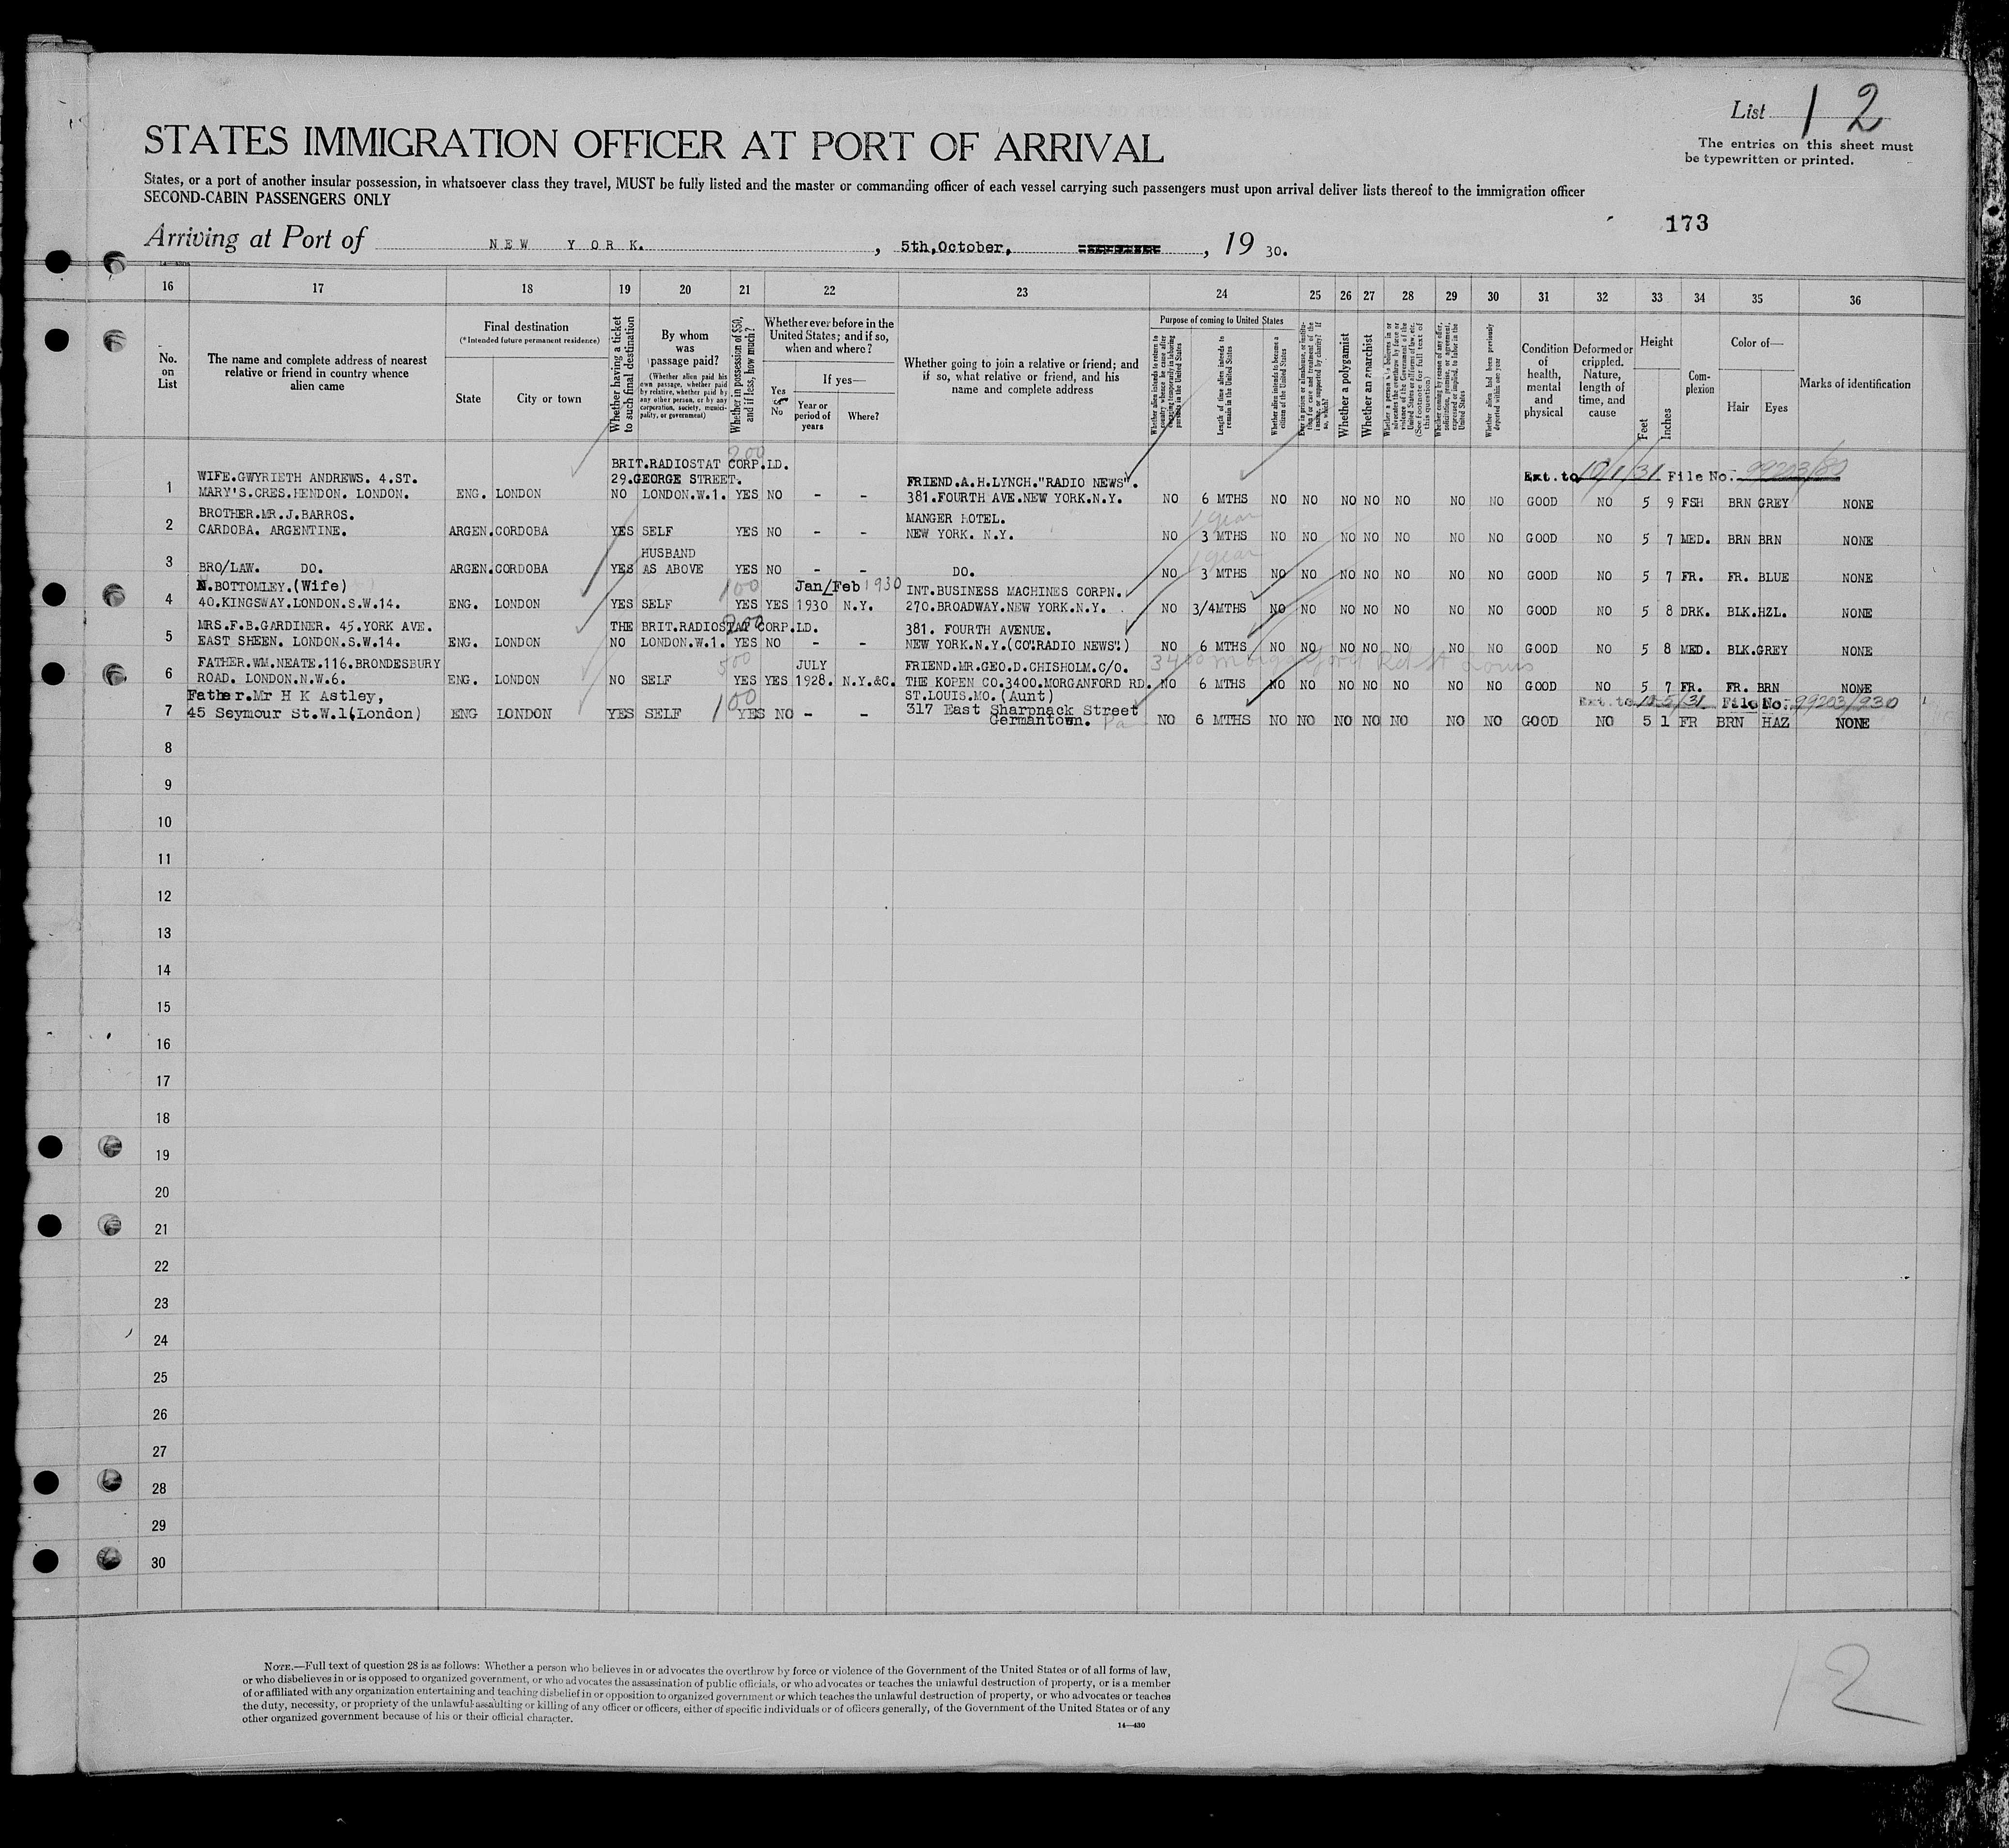 List 12
STATES IMMIGRATION OFFICER AT PORT OF ARRIVAL
The entries on this sheet must
be typewritten or printed.
States, or a port of another insular possession, in whatsoever class they travel, MUST be fully listed and the master or commanding officer of each vessel carrying such passengers must upon arrival deliver lists thereof to the immigration officer
SECOND-CABIN PASSENGERS ONLY
173
Arriving at Port of NEW YORK. , 5th,October, , 19 30.
16 17 18 19 20 21 22 23 24 25 26 27 28 29 30 31 32 33 34 35 36
No. on List
The name and complete address of nearest
relative or friend in country whence
alien came
Final destination
(*Intended future permanent residence)
State
City or town
Whether having a ticket
to such final destination
By whom
was
passage paid?
(Whether alien paid his
own passage, whether paid
by relative, whether paid by
any other person, or by any
corporation, society, munici-
pality, or government)
Whether in possession of $50,
and if less, how much?
Whether ever before in the
United States; and if so,
when and where?
Yes
or
No
If yes—
Year or
period of
years
Where?
Whether going to join a relative or friend; and
if so, what relative or friend, and his
name and complete address
Purpose of coming to United States
Whether alien intends to return to
country whence he came after
engaging temporarily in laboring
pursuits in the United States
Length of time alien intends to
remain in the United States
Whether alien intends to become a
citizen of the United States
Whether a polygamist
Whether an anarchist
Whether alien had been previously
deported within one year
Condition
of
health,
mental
and
physical
Deformed or
crippled.
Nature,
length of
time, and
cause
Height
Feet
Inches
Com-
plexion
Color of—
Hair
Eyes
Marks of identification
200
BRIT.RADIOSTAT CORP.LD.
Ext. to 10/1/31 File No. 99203/80
WIFE.GWYRIETH ANDREWS. 4.ST. 29.GEORGE STREET. FRIEND.A.H.LYNCH."RADIO NEWS".
1 MARY'S.CRES.HENDON. LONDON. ENG. LONDON NO LONDON.W.1. YES NO - - 381.FOURTH AVE.NEW YORK.N.Y. NO 6 MTHS NO NO NO NO NO NO NO GOOD NO 5 9 FSH BRN GREY NONE
BROTHER.MR.J.BARROS. MANGER HOTEL. 1 year
2 CARDOBA. ARGENTINE. ARGEN. CORDOBA YES SELF YES NO - - NEW YORK. N.Y. NO 3 MTHS NO NO NO NO NO NO NO GOOD NO 5 7 MED. BRN BRN NONE
HUSBAND 1 year
3 BRO/LAW. DO. ARGEN. CORDOBA YES AS ABOVE YES NO - - DO. NO 3 MTHS NO NO NO NO NO NO NO GOOD NO 5 7 FR. FR. BLUE NONE
N.BOTTOMLEY.(Wife) 100 Jan/Feb 1930 INT.BUSINESS MACHINES CORPN.
4 40.KINGSWAY.LONDON.S.W.14. ENG. LONDON YES SELF YES YES 1930 N.Y. 270.BROADWAY.NEW YORK.N.Y. NO 3/4MTHS NO NO NO NO NO NO NO GOOD NO 5 8 DRK. BLK. HZL. NONE
MRS.F.B.GARDINER. 45.YORK AVE. THE BRIT.RADIOSTAT CORP.LD. 200 381. FOURTH AVENUE.
5 EAST SHEEN. LONDON.S.W.14. ENG. LONDON NO LONDON.W.1. YES NO - - NEW YORK.N.Y.(CO."RADIO NEWS".) NO 6 MTHS NO NO NO NO NO NO NO GOOD NO 5 8 MED. BLK. GREY NONE
FATHER.WM.NEATE.116.BRONDESBURY 500 JULY FRIEND.MR.GEO.D.CHISHOLM.C/O. 3400 Morganford Rd St Louis
6 ROAD. LONDON.N.W.6. ENG. LONDON NO SELF YES YES 1928. N.Y.&C. THE KOPEN CO.3400.MORGANFORD RD. NO 6 MTHS NO NO NO NO NO NO NO GOOD NO 5 7 FR. FR. BRN NONE
ST.LOUIS.MO. (Aunt)
Father.Mr H K Astley, 100 317 East Sharpnack Street Ext. to 10-5/31 File No. 99203/930
7 45 Seymour St.W.1(London) ENG LONDON YES SELF YES NO - - Germantown. Pa NO 6 MTHS NO NO NO NO NO NO NO GOOD NO 5 1 FR BRN HAZ NONE
8
9
10
11
12
13
14
15
16
17
18
19
20
21
22
23
24
25
26
27
28
29
30
NOTE.—Full text of question 28 is as follows: Whether a person who believes in or advocates the overthrow by force or violence of the Government of the United States or of all forms of law,
or who disbelieves in or is opposed to organized government, or who advocates the assassination of public officials, or who advocates or teaches the unlawful destruction of property, or is a member
of or affiliated with any organization entertaining and teaching disbelief in or opposition to organized government or which teaches the unlawful destruction of property, or who advocates or teaches
the duty, necessity, or propriety of the unlawful assaulting or killing of any officer or officers, either of specific individuals or of officers generally, of the Government of the United States or of any
other organized government because of his or their official character.
14—430
12